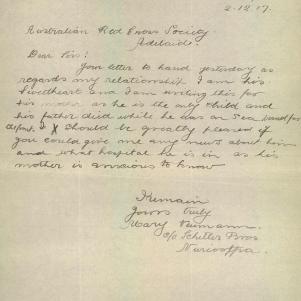 2.12.17.
Australian Red Cross Society
Adelaide
Dear Sir:
Your letter to hand yesterday as
regards my relationship I am his
Sweetheart and I am writing this for
his mother as he is the only child and
his father died while he was on Sea bound for
I should be greatly pleased if
you could give me any news about him
and what hospital he is in as his
mother is anxious to know
I remain
Yours truly
Mary Neumann
c/o Schiller Bros
Nuriootpa.